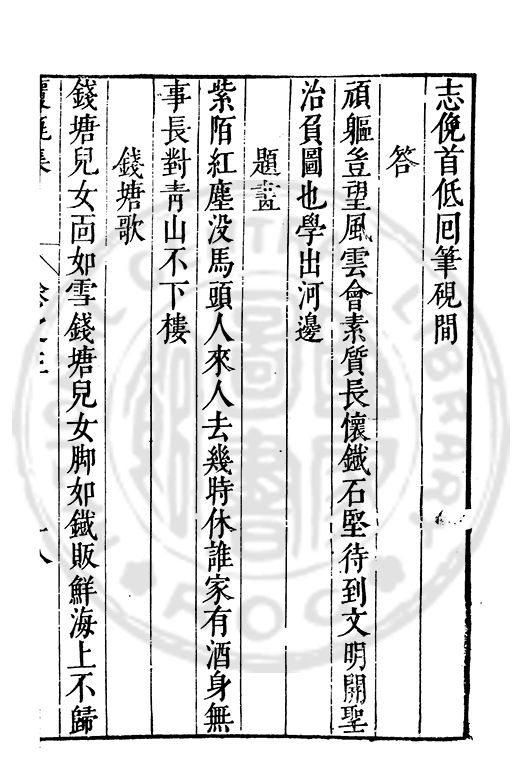 志俛首低回筆硯間
答
頑軀豈望風雲會素質長懷鐵石堅待到文明開聖
治負圖也學出河邊
題畫
紫陌紅塵没馬頭人來人去幾時休誰家有酒身無
事長對青山不下樓
錢塘歌
錢塘兒女面如雪錢塘兒女脚如鐵販鮮海上不歸